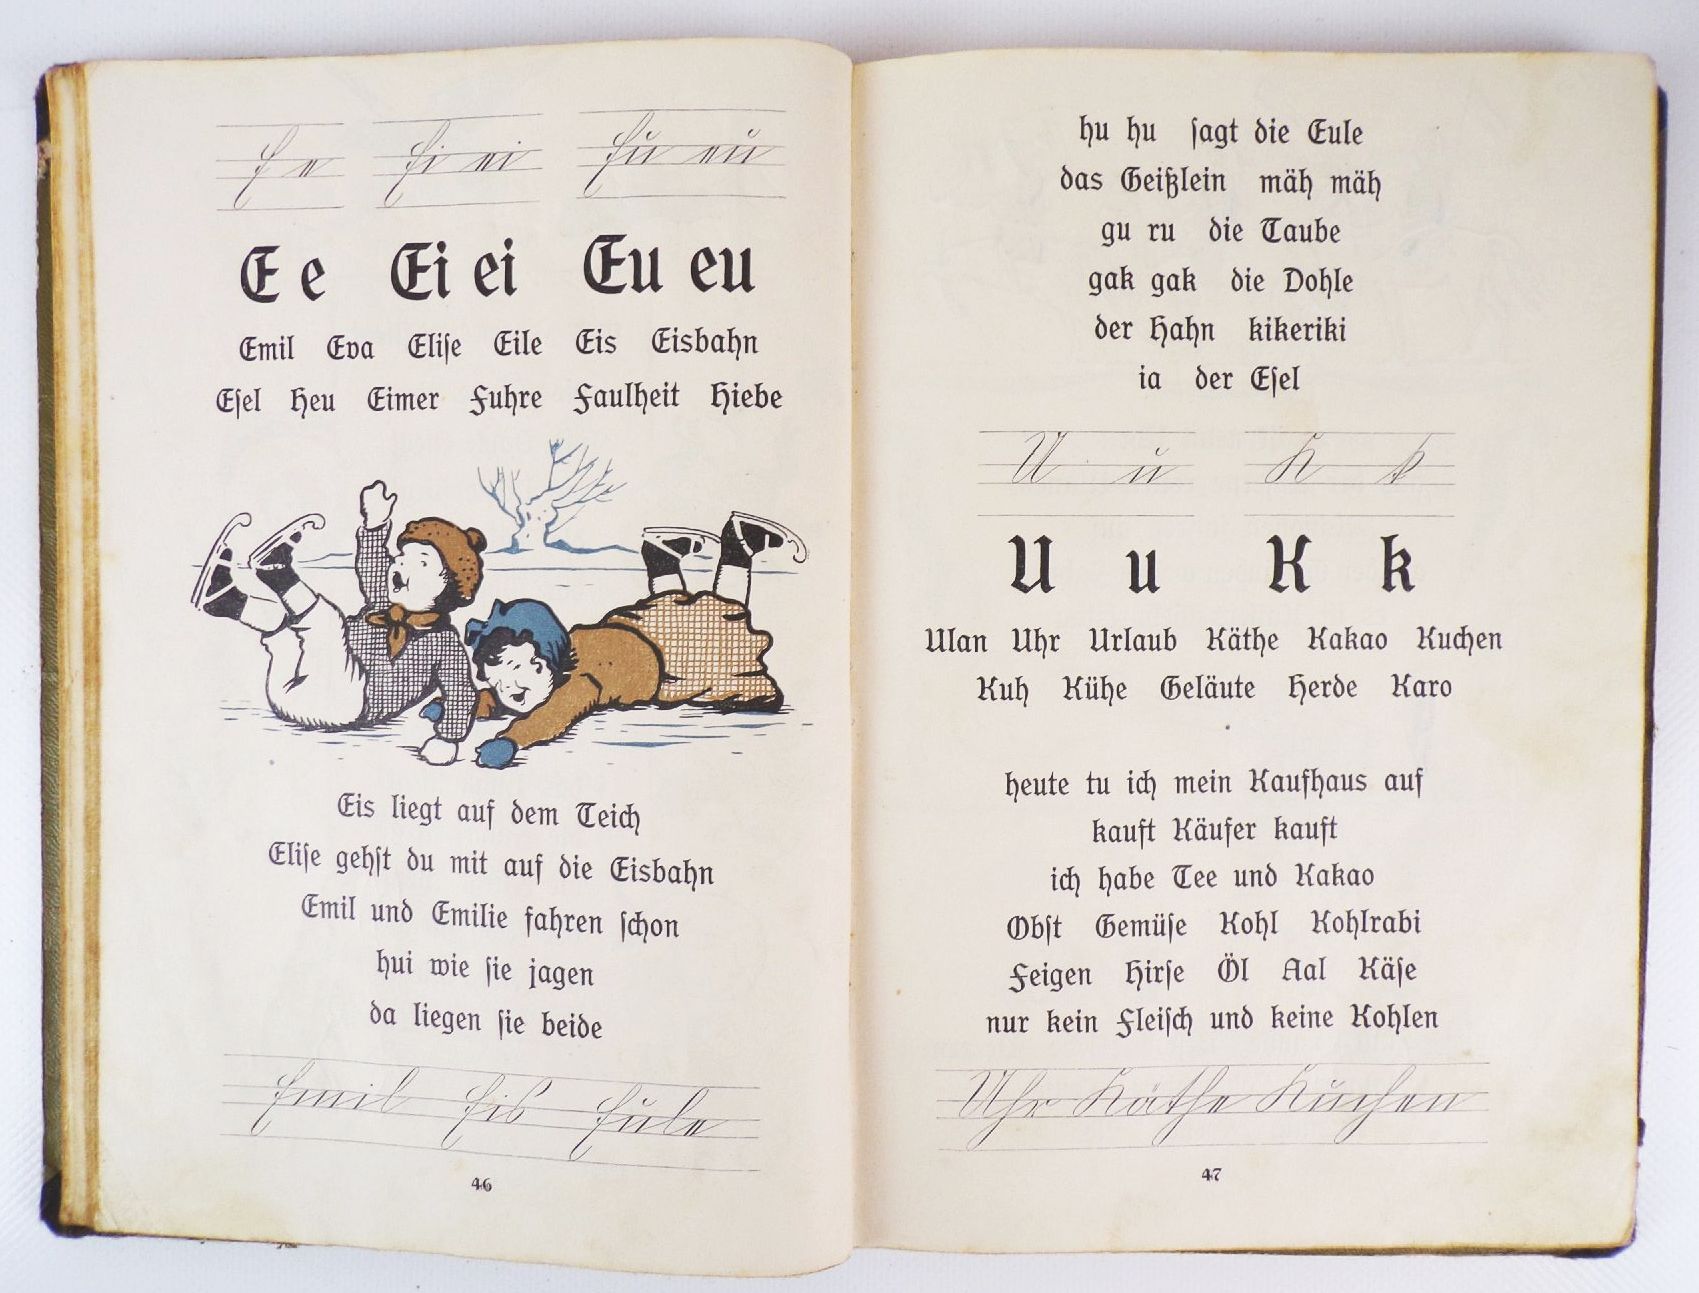 E e Ei ei Eu eu
E e Ei ei Eu eu
Emil Eva Eliſe Eile Eis Eisbahn
Eſel Heu Eimer Fuhre Faulheit Hiebe
Eis liegt auf dem Teich
Eliſe gehſt du mit auf die Eisbahn
Emil und Emilie fahren ſchon
hui wie ſie jagen
da liegen ſie beide
Emil Eis Eule
46
hu hu ſagt die Eule
das Geißlein mäh mäh
gu ru die Taube
gak gak die Dohle
der Hahn kikeriki
ia der Eſel
U u K k
U u K k
Ulan Uhr Urlaub Käthe Kakao Kuchen
Kuh Kühe Geläute Herde Karo
heute tu ich mein Kaufhaus auf
kauft Käufer kauft
ich habe Tee und Kakao
Obſt Gemüſe Kohl Kohlrabi
Feigen Hirſe Öl Aal Käſe
nur kein Fleiſch und keine Kohlen
Uhr Käthe Kuchen
47